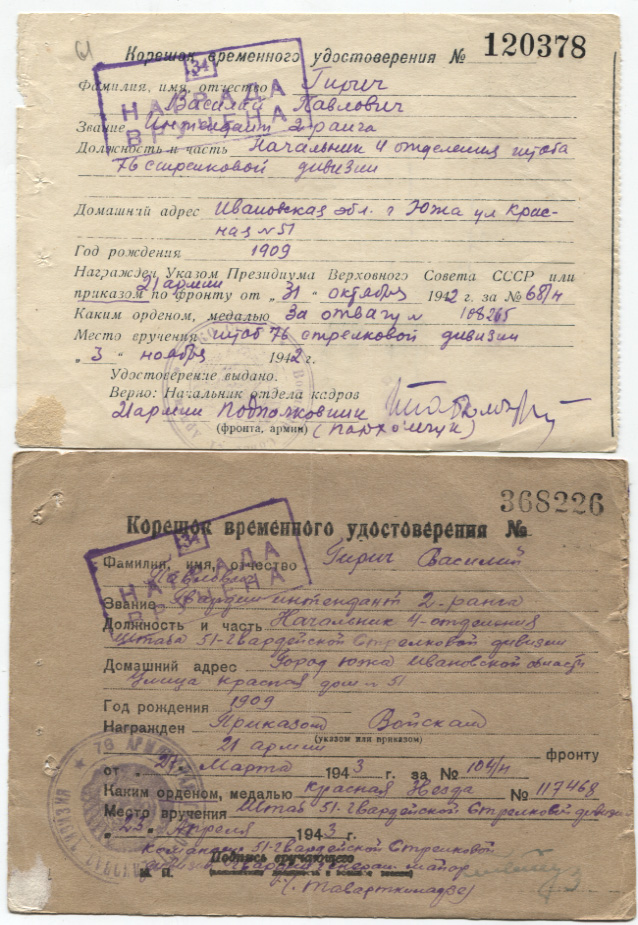 61
Корешок временного удостоверения № 120378
34
НАГРАДА
ВРУЧЕНА
Фамилия, имя, отчество Гирич
Василий Павлович
Звание Интендант 2 ранга
Должность и часть Начальник 4 отделения штаба
76 стрелковой дивизии
Домашний адрес Ивановская обл. г Южа ул Крас-
ная № 51
Год рождения 1909
Награжден Указом Президиума Верховного Совета СССР или
21 армии
приказом по фронту от „31“ октября 1942 г. за № 68/н
Каким орденом, медалью За отвагу № 108265
Место вручения штаб 76 стрелковой дивизии
„3“ ноября 1942 г.
Удостоверение выдано.
Верно: Начальник отдела кадров
21 армии Подполковник
(фронта, армии) (Пархомчук)
368226
Корешок временного удостоверения №
34
НАГРАДА
ВРУЧЕНА
Фамилия, имя, отчество Гирич Василий
Павлович
Звание Гвардии интендант 2-ранга
Должность и часть Начальник 4-отделения
Штаба 51-Гвардейской Стрелковой дивизии
Домашний адрес Город Южа Ивановской области
Улица красная дом № 51
Год рождения 1909
Награжден Приказом Войскам
(указом или приказом)
21 армии фронту
от Марта 1943 г. за № 104/н
Каким орденом, медалью Красная Звезда № 117468
Место вручения Штаб 51-Гвардейской Стрелковой дивизии
„23“ Апреля 1943 г.
Командир 51-Гвардейской Стрелковой
дивизии Гвардии Генерал майор
Подпись вручающего
М. П.
(Таварткиладзе)